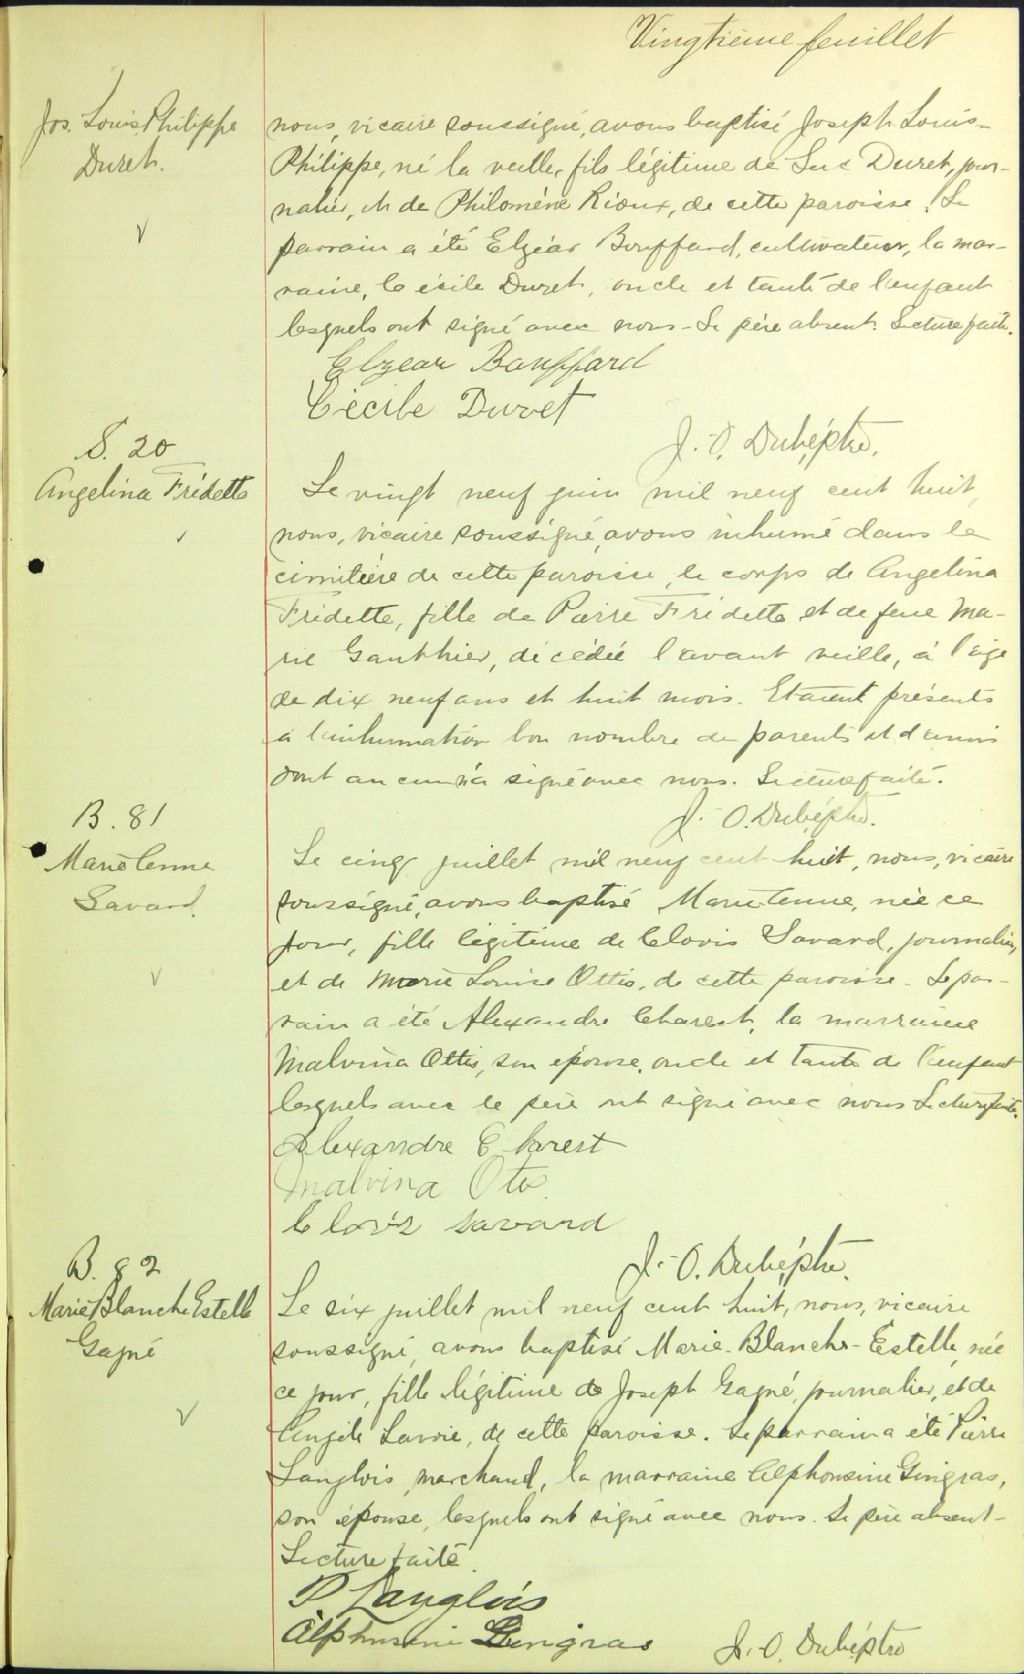 Vingtième feuillet
Jos. Louis Philippe
Duret.
nous, vicaire soussigné, avons baptisé Joseph Louis-
Philippe, né la veille, fils légitime de Luc Duret, jour-
nalier, et de Philomène Rioux, de cette paroisse. Le
parrain a été Elzéar Bouffard, cultivateur, la mar-
raine, Cécile Duret, oncle et tante de l'enfant
lesquels ont signé avec nous - Le père absent. Lecture faite.
Elzear Bouffard
Cécile Duret
J.-O. Dubé, ptre.
S. 20
Angelina Fridette
Le vingt neuf juin mil neuf cent huit,
nous, vicaire soussigné, avons inhumé dans le
cimitière de cette paroisse, le corps de Angelina
Fridette, fille de Pierre Fridette et de feue Ma-
rie Gauthier, décédée l'avant veille, à l'age
de dix neuf ans et huit mois. Etaient présents
a l'inhumation bon nombre de parents et d'amis
dont aucun n'a signé avec nous. Lecture faite.
J.-O. Dubé, ptre.
B. 81
Marie
Savard.
Le cinq juillet mil neuf cent huit, nous, vicaire
soussigné, avons baptisé Marie, née ce
jour, fille légitime de Clovis Savard, journalier,
et de Marie Louise Ottis, de cette paroisse. Le par-
rain a été Alexandre Charest, la marraine
Malvina Ottis, son épouse, oncle et tante de l'enfant
lesquels avec le père ont signé avec nous Lecture faite.
Alexandre Charest
Malvina Otis
Clovis Savard
J.-O. Dubé, ptre.
B. 82
Marie Blanche Estelle
Gagné
Le six juillet mil neuf cent huit, nous, vicaire
soussigné, avons baptisé Marie-Blanche-Estelle, née
ce jour, fille légitime de Joseph Gagné, journalier, et de
Angèle Lavoie, de cette paroisse. Le parrain a été Pierre
Langlois, marchand, la marraine Alphonsine Gingras,
son épouse, lesquels ont signé avec nous. Le père absent -
Lecture faite.
P Langlois
Alphonsine Gingras
J.-O. Dubé, ptre